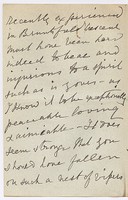 recently experienced
in Bruntsfield Crescent
must have been hard
indeed to bear and
injurious to a spirit
such as is yours - as
I know it to be
peaceable loving
& amicable - It does
seem strange that you
should have fallen
on such a nest of vipers